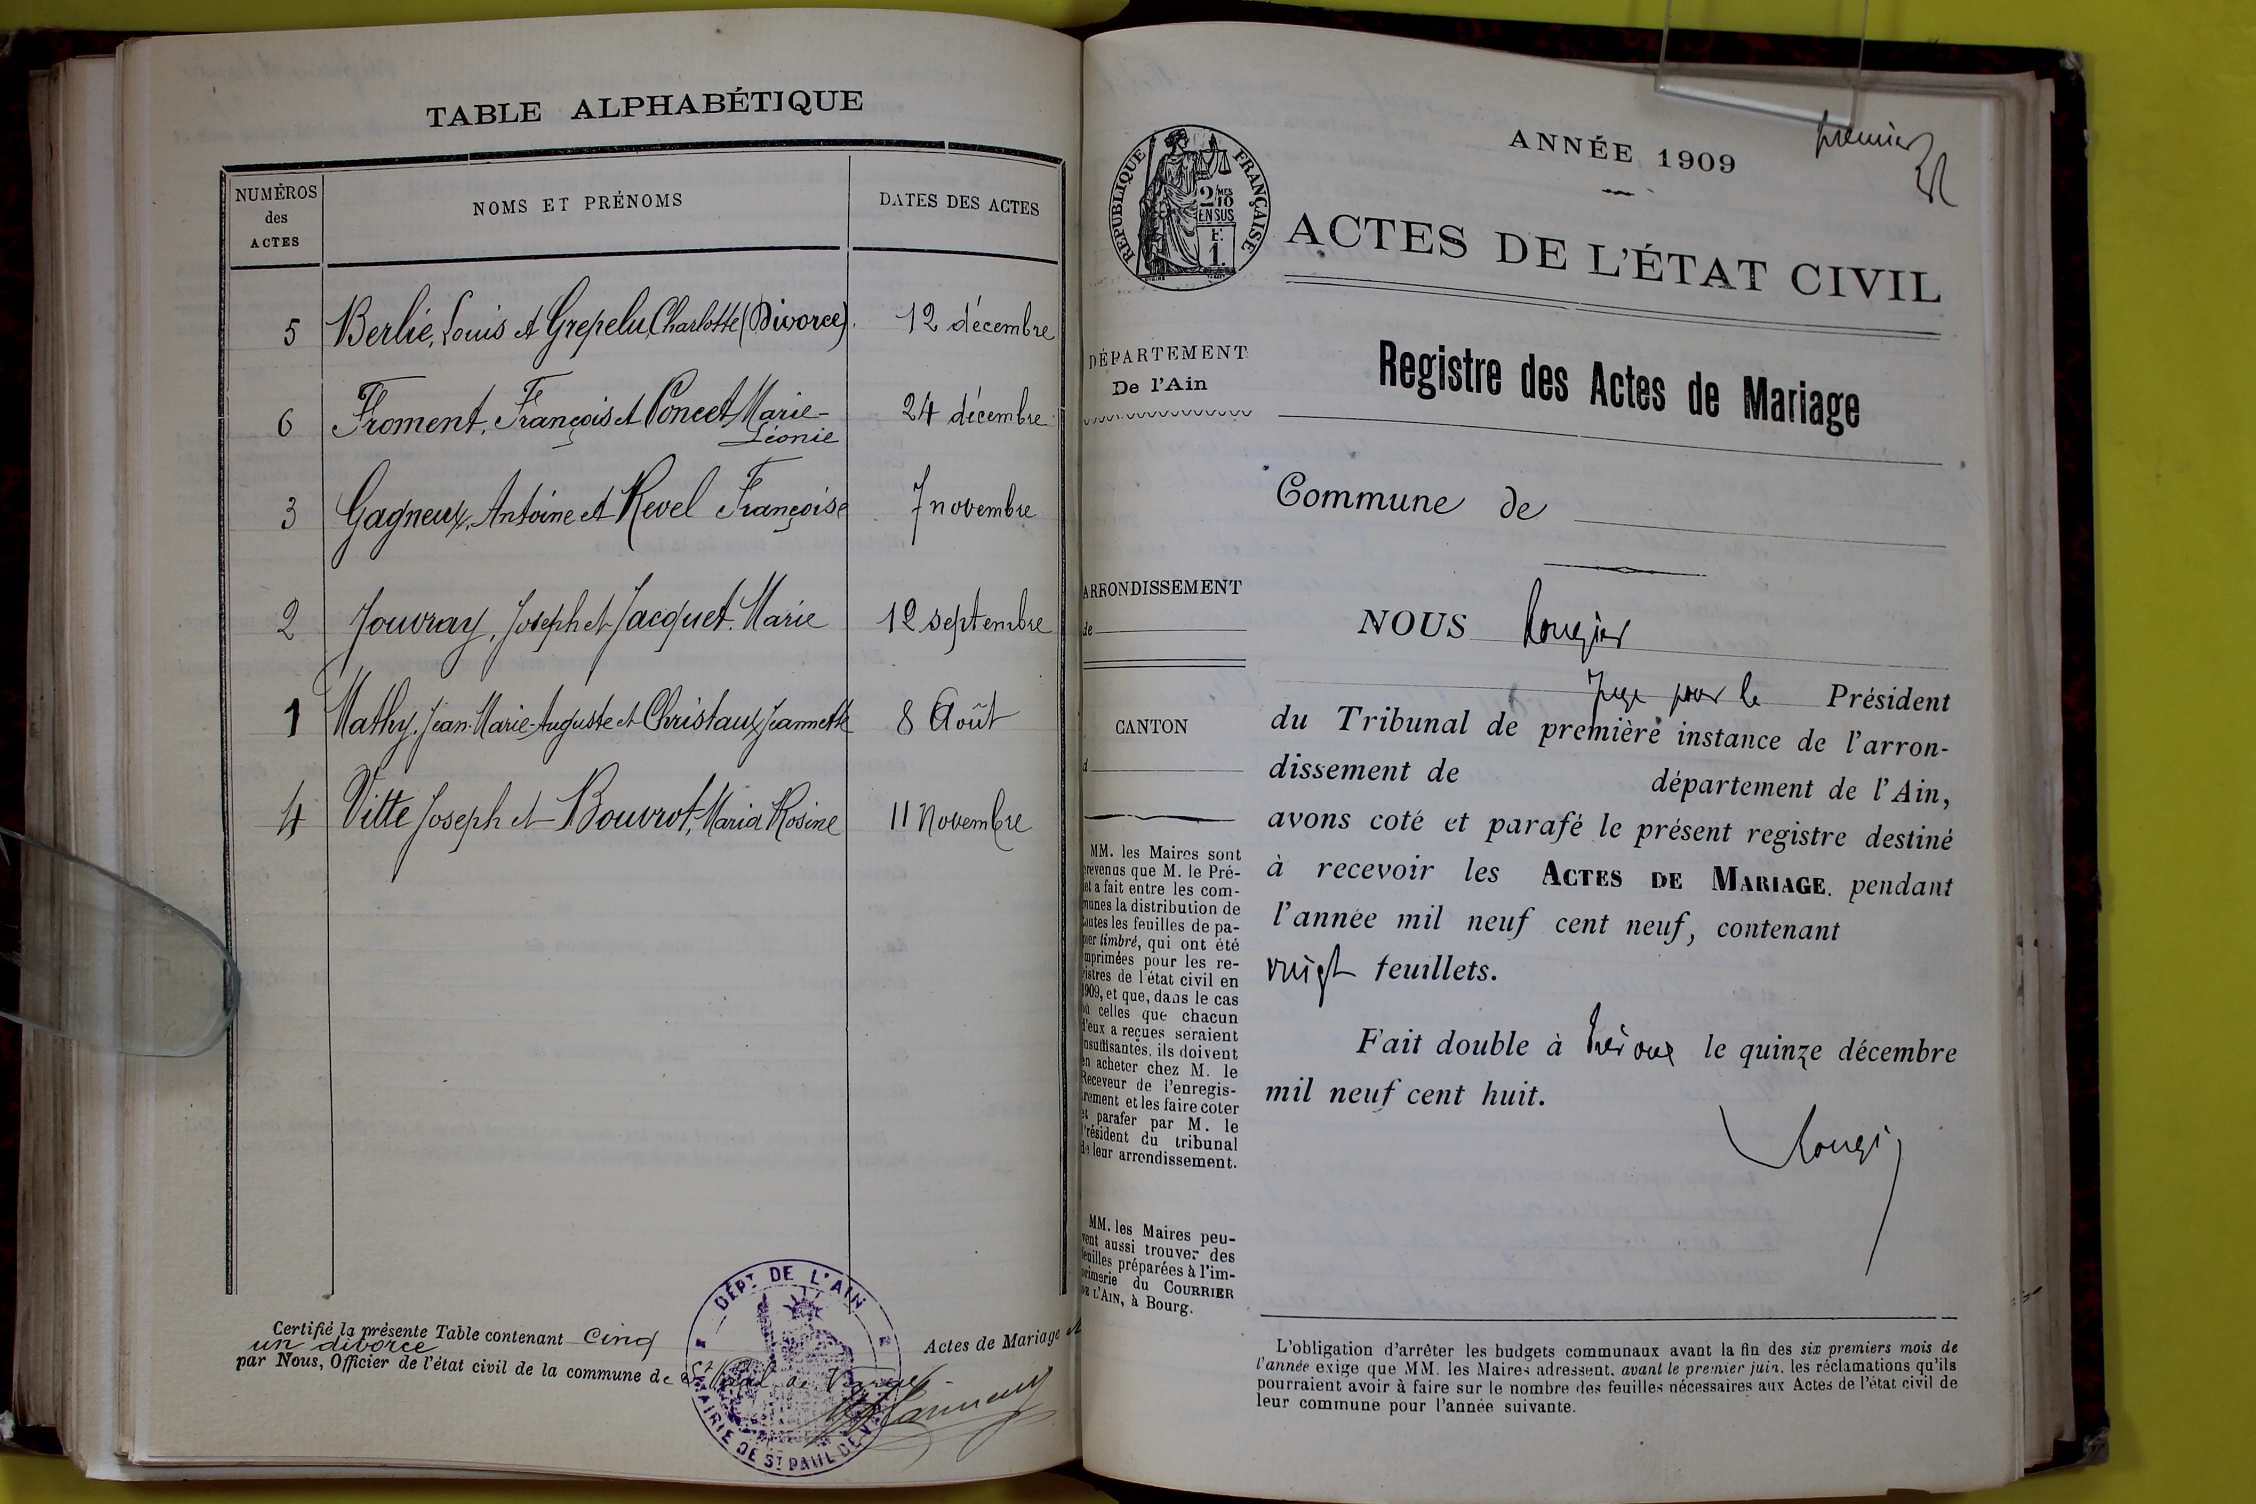 TABLE ALPHABÉTIQUE
NUMÉROS
des
ACTES
NOMS ET PRÉNOMS
DATES DES ACTES
5 Berlie, Louis et Grepelu, Charlotte (Divorce). 12 décembre
6 Froment, François et Poncet, Marie-
Léonie 24 décembre
3 Gagneux, Antoine et Revel Françoise 7 novembre
2 Jouvray, Joseph et Jacquet. Marie 12 septembre
1 Mathy, Jean-Marie-Auguste et Christaux Jeannette 8 Août
4 Vitte Joseph et Bouvrot, Maria Rosine 11 Novembre
Certifié la présente Table contenant cinq Actes de Mariage
un divorce
par Nous, Officier de l'état civil de la commune de St Paul de Varax
DÉPT DE L'AIN
MAIRIE DE ST PAUL-DE-V
premier
ANNÉE 1909
RÉPUBLIQUE FRANÇAISE
2 MES
10
EN SUS
F.
1.
ACTES DE L'ÉTAT CIVIL
DÉPARTEMENT
De l'Ain
Registre des Actes de Mariage
Commune de
ARRONDISSEMENT
de
CANTON
d
NOUS Rougier
Juge pour le Président
du Tribunal de première instance de l'arron-
dissement de département de l'Ain,
avons coté et parafé le présent registre destiné
à recevoir les ACTES DE MARIAGE. pendant
l'année mil neuf cent neuf, contenant
vingt feuillets.
Fait double à Trévoux le quinze décembre
mil neuf cent huit.
MM. les Maires sont
prévenus que M. le Pré-
fet a fait entre les com-
munes la distribution de
toutes les feuilles de pa-
pier timbré, qui ont été
imprimées pour les re-
gistres de l'état civil en
1909, et que, dans le cas
où celles que chacun
d'eux a reçues seraient
insuffisantes, ils doivent
en acheter chez M. le
Receveur de l'enregis-
trement et les faire coter
et parafer par M. le
Président du tribunal
de leur arrondissement.
MM. les Maires peu-
vent aussi trouver des
feuilles préparées à l'im-
primerie du COURRIER
DE L'AIN, à Bourg.
L'obligation d'arrêter les budgets communaux avant la fin des six premiers mois de
l'année exige que MM. les Maires adressent, avant le premier juin, les réclamations qu'ils
pourraient avoir à faire sur le nombre des feuilles nécessaires aux Actes de l'état civil de
leur commune pour l'année suivante.